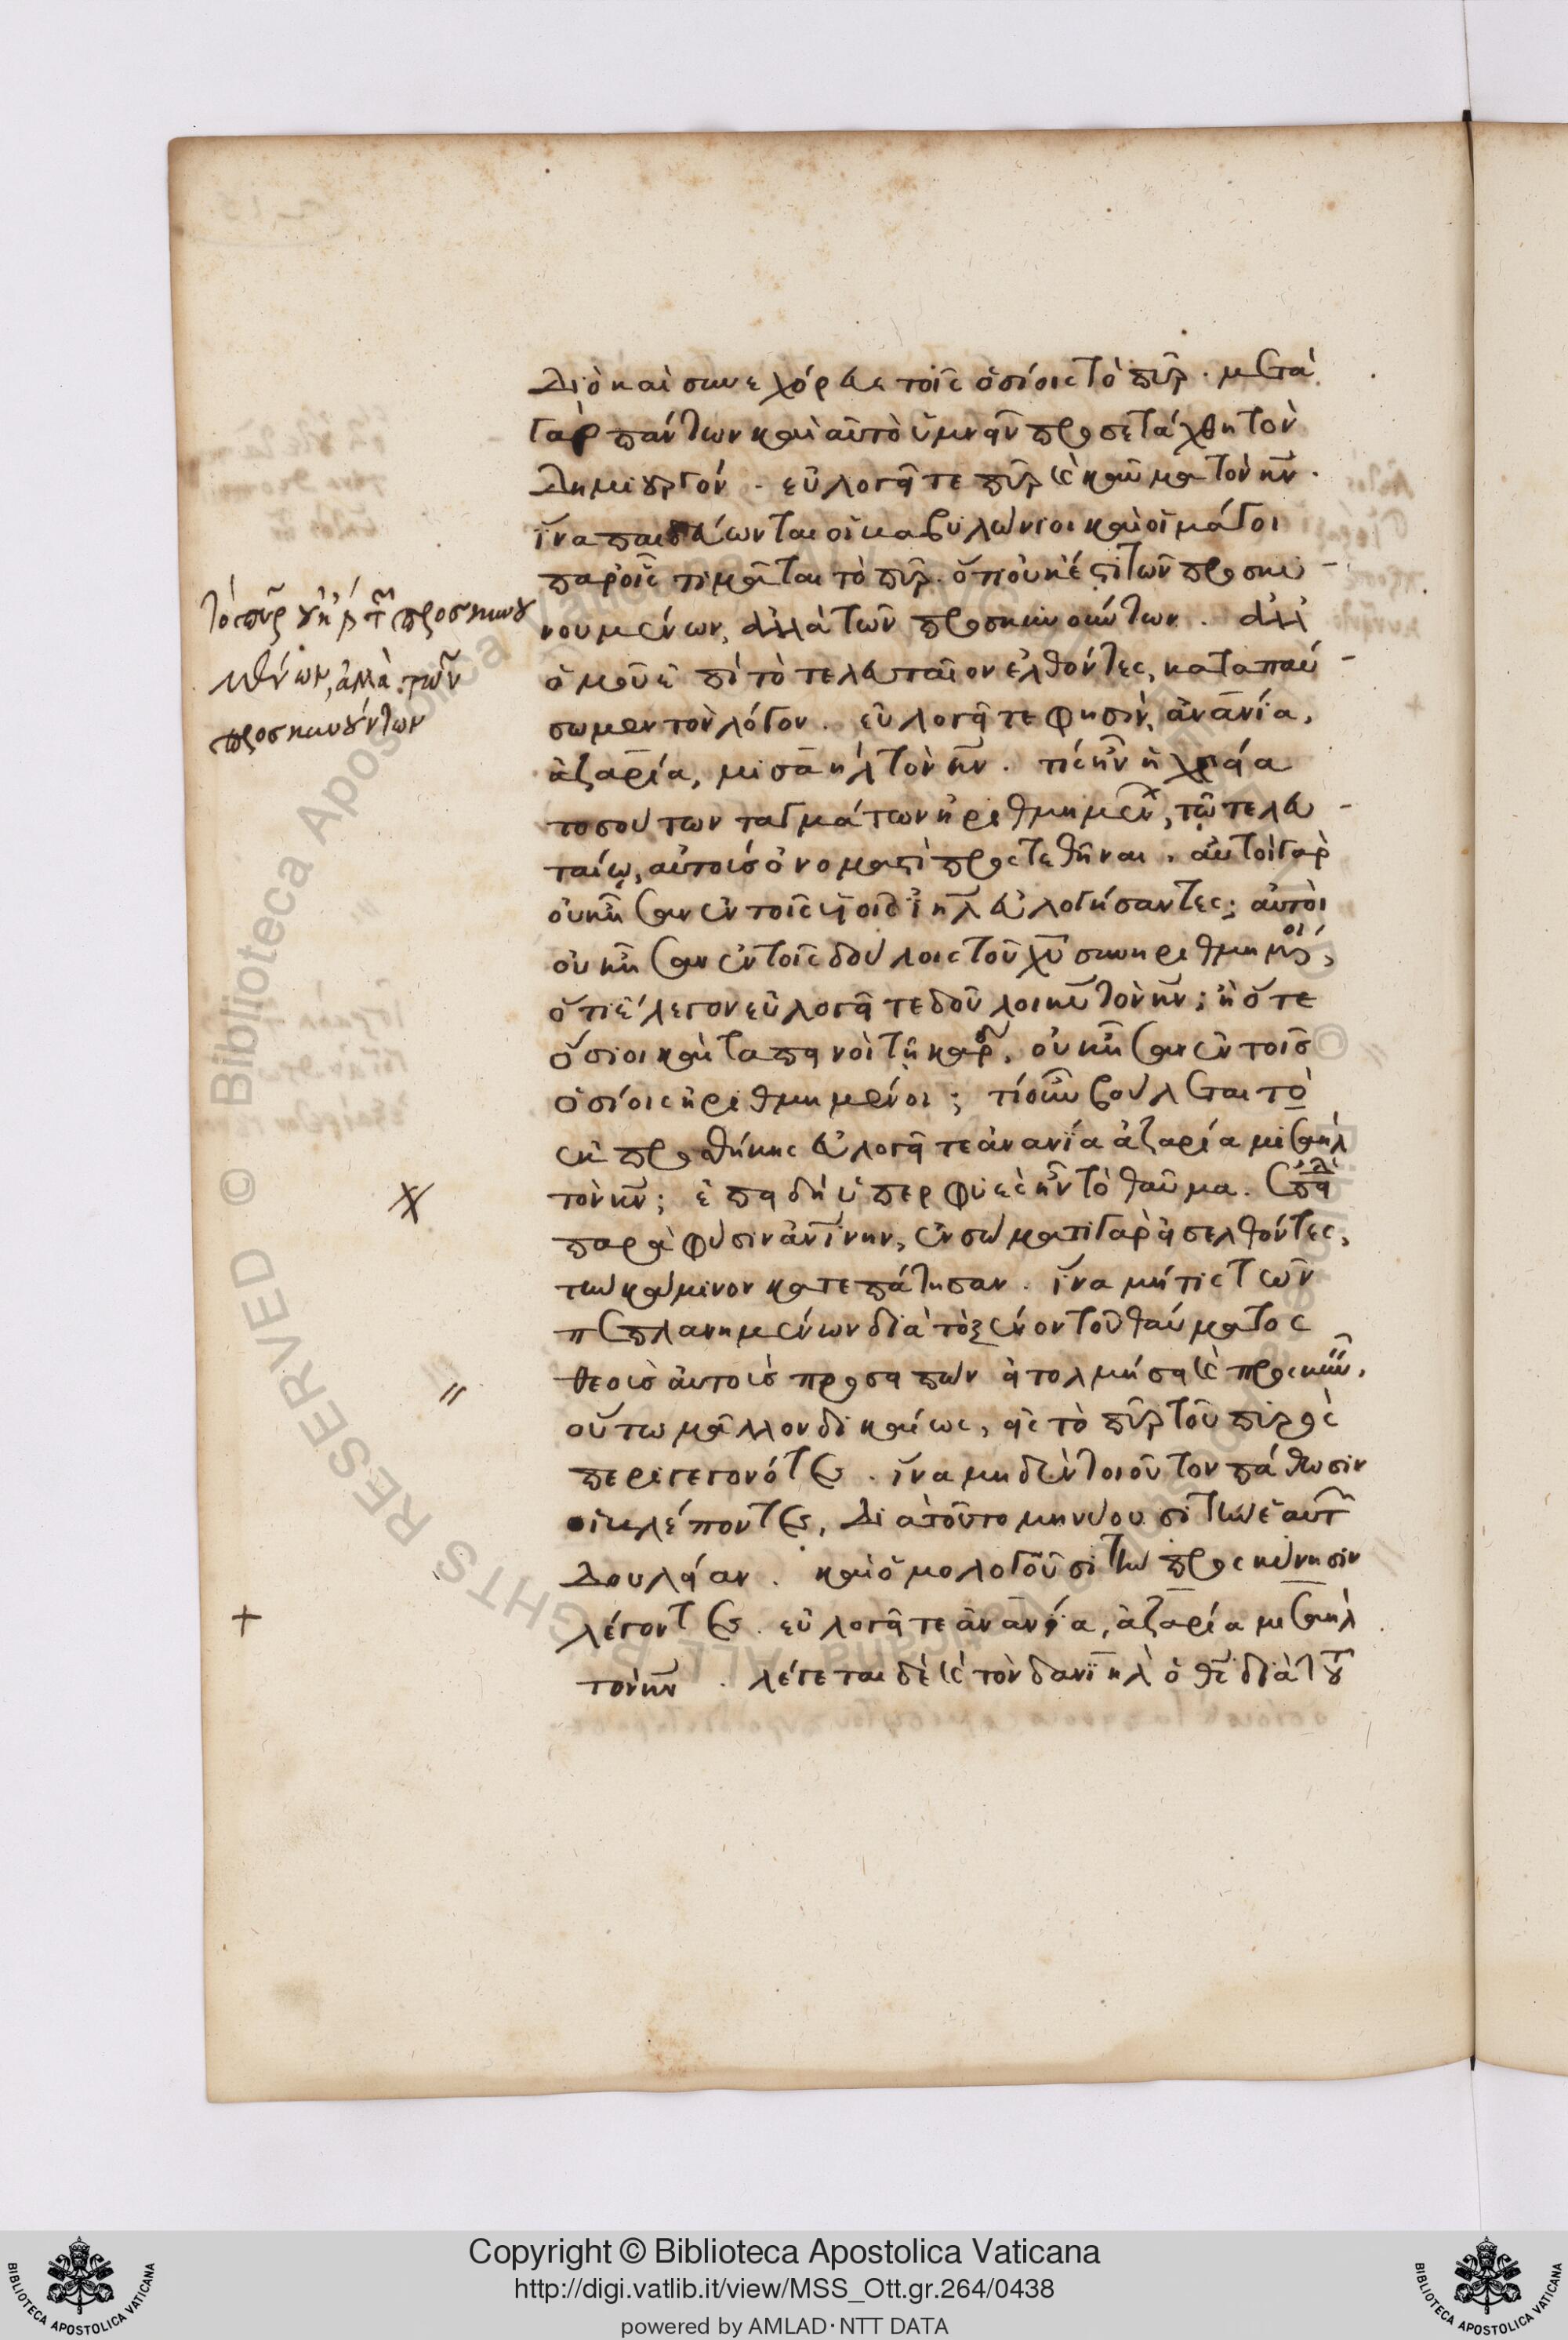 Διὸ καὶ συνεχόρευε τοῖς ὁσίοις τὸ πῦρ. μετὰ
γὰρ πάντων καὶ αὐτὸ ὑμνεῖν προσετάχθη τὸν
Δημιουργόν. εὐλογεῖτε πῦρ καὶ καῦμα τὸν κν̄.
ἵνα παιδεύωνται οἱ βαβυλώνιοι καὶ οἱ μάγοι
παρ' οἷς τιμᾶται τὸ πῦρ. ὅτι οὐκ ἔστι τῶν προσκυ
νουμένων, ἀλλὰ τῶν προσκυνούντων. ἀλλ'
τὸ πῦρ οὐκ τῶν προσκυνου
μένων, ἀλλὰ τῶν
προσκυνούντων
ὁμοῦ ἐπὶ τὸ τελευταῖον ἐλθόντες, καταπαύ
σωμεν τὸν λόγον. εὐλογεῖτε φησὶν, ἀνανία,
ἀζαρία, μισαὴλ τὸν κν̄. τίς ἦν ἡ χρεία
τοσούτων ταγμάτων ἠριθμημένων, τῷ τελευ
ταίῳ, αὐτοὺς ὀνομαστὶ προστεθῆναι. αὐτοὶ γὰρ
οὐκ ἦσαν ἐν τοῖς υἱοῖς ἰηλ̄ εὐλογήσαντες; αὐτοὶ
οὐκ ἦσαν ἐν τοῖς δούλοις τοῦ χῡ συνηριθμημένοι,
ὅτι ἔλεγον εὐλογεῖτε δοῦλοι κῡ τὸν κν̄; ἢ ὅτε
ὅσιοι καὶ ταπεινοὶ τῇ καρδ, οὐκ ἦσαν ἐν τοῖς
ὁσίοις ἠριθμημένοι; τί οὖν βούλεται τὸ
ἐκ προσθήκης εὐλογεῖτε ἀνανία ἀζαρία μισαὴλ
τὸν κν̄; ἐπειδὴ ὑπερφυὲς ἦν τὸ θαῦμα. ἐπειδὴ
παρὰ φύσιν ἦν, ἐν σώματι γὰρ εἰσελθόντες,
τὴν κάμινον κατεπάτησαν. ἵνα μή τις τῶν
πεπλανημένων διὰ τὸ ξένον τοῦ θαύματος
θεοὺς αὐτοὺς προσειπεῖν ἢ τολμήσῃ καὶ προσκυν.
οὕτω μᾶλλον δικαίως, εἰς τὸ πῦρ τοῦ πυρὸς
περιγεγονότες. ἵνα μηδὲν τοιοῦτον πάθωσιν
οἱ βλέποντες, Διὰ τοῦτο μηνύουσι τὴν ἑαυτ
Δουλείαν. καὶ ὁμολογοῦσι τὴν προσκύνησιν
λέγοντες. εὐλογεῖτε ἀνανία, ἀζαρία μισαὴλ
τὸν κν̄. λέγεται δὲ καὶ τὸν δανιὴλ ὁ θς̄ διὰ τοῦ
Copyright © Biblioteca Apostolica Vaticana
http://digi.vatlib.it/view/MSS_Ott.gr.264/0438
powered by AMLAD·NTT DATA